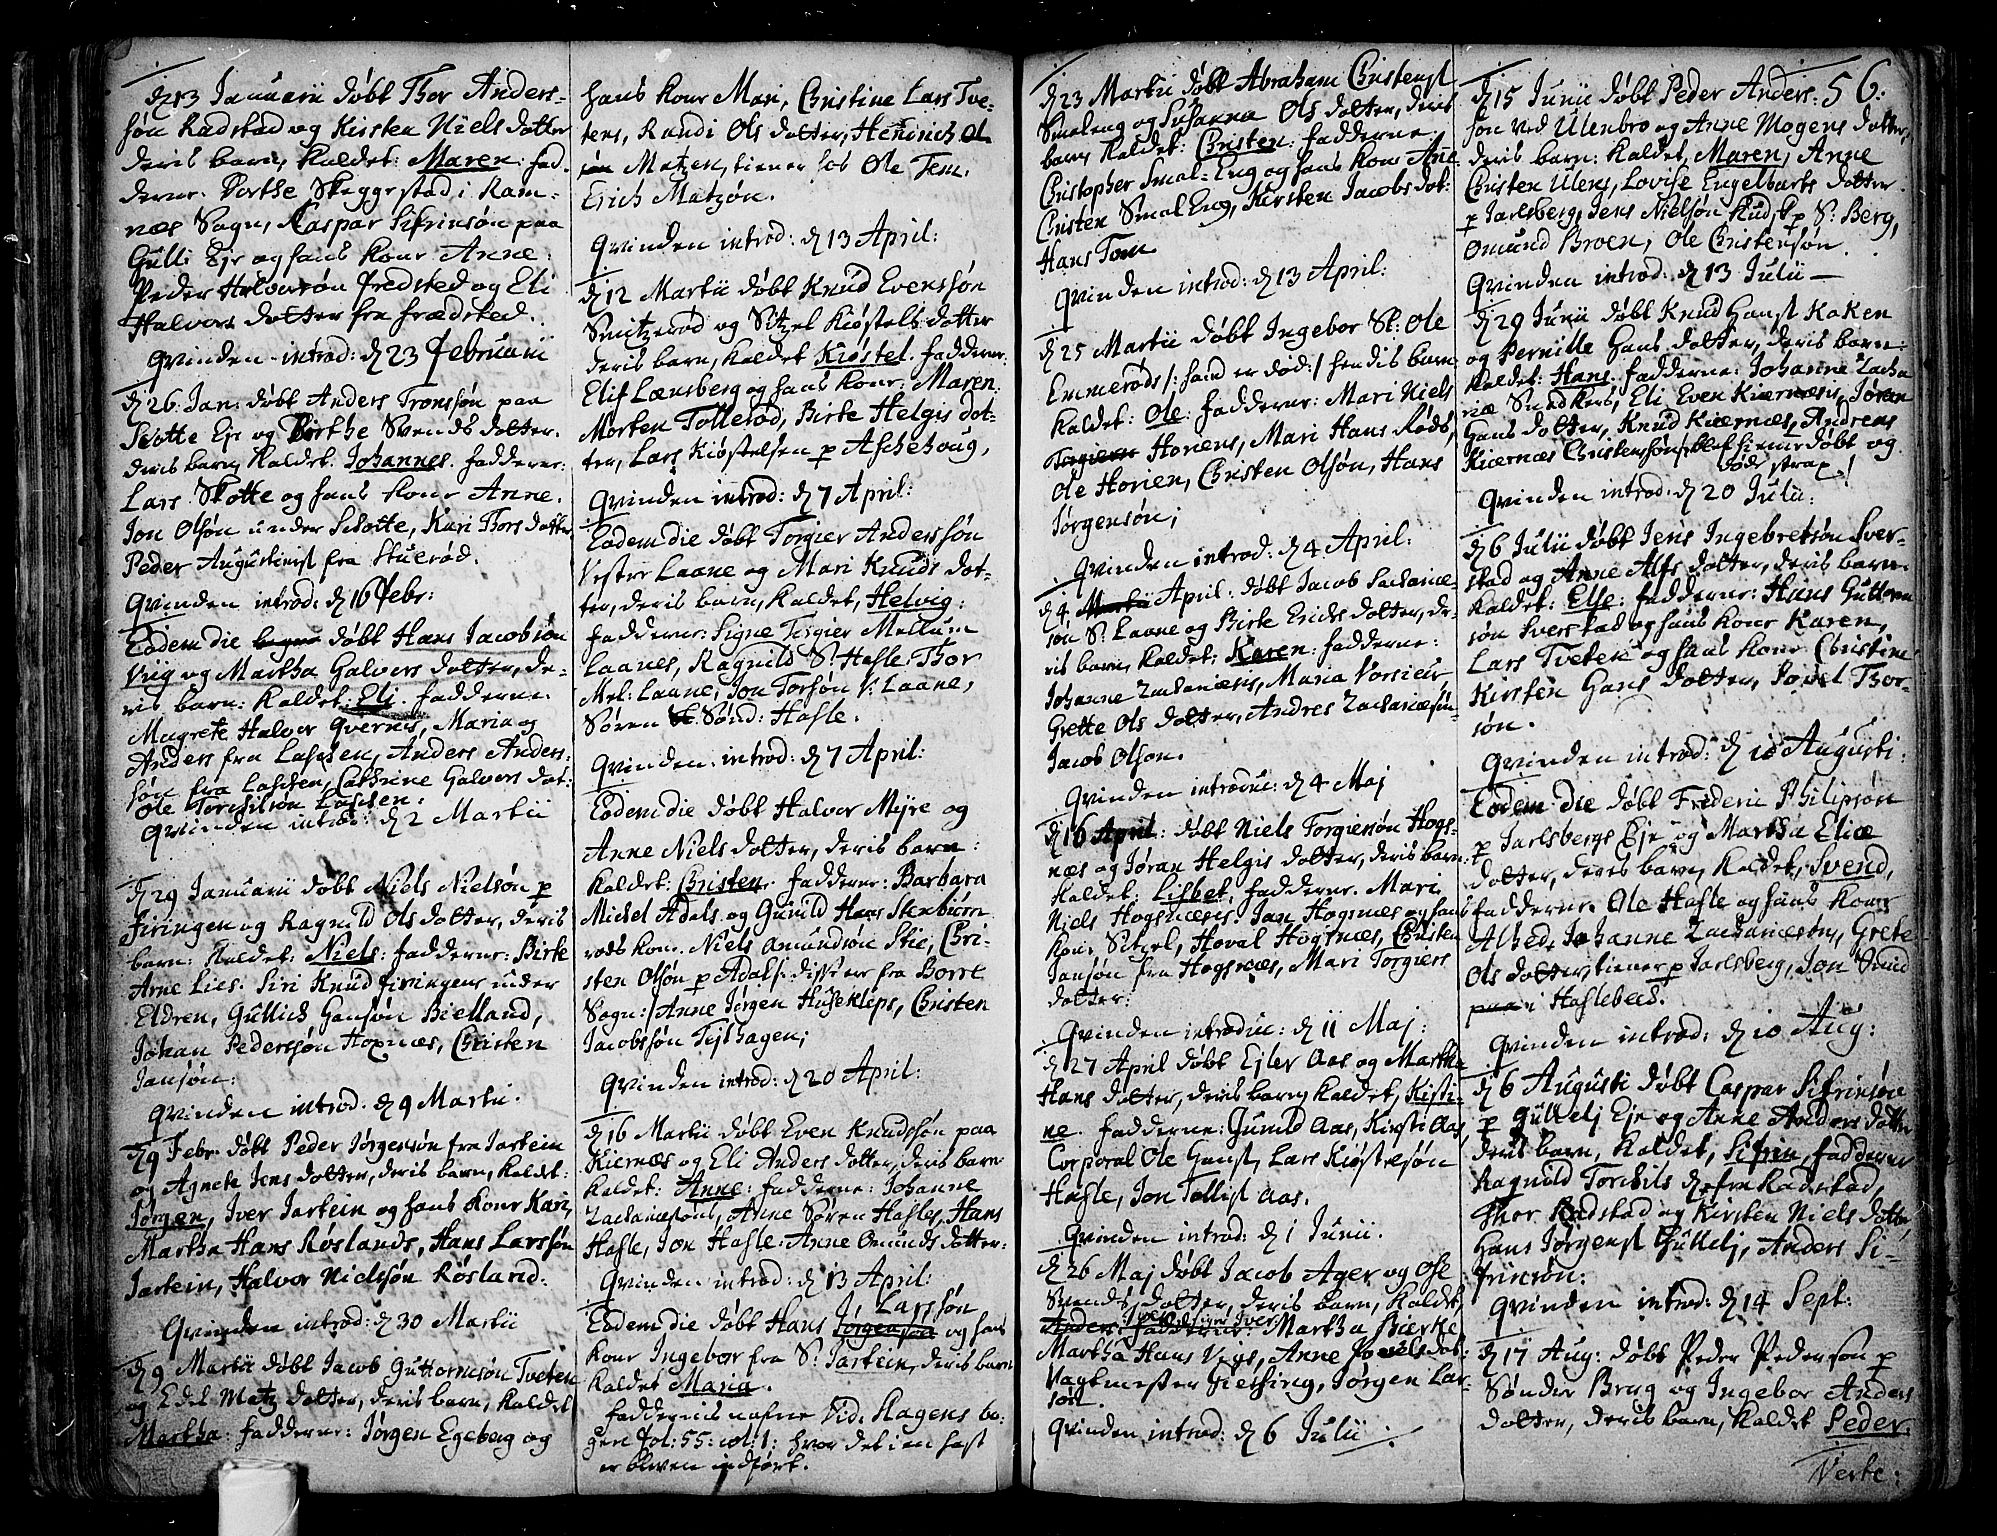 d 13 Januarii døbt Thor Anders-
søn Radstad og Kirsten Niels dotter
deris barn, kaldet: Maren: fad-
derne: Dorthe Skeggestad i Ram-
næs Sogn, Caspar Sifrinsøn paa
Gulli Eje og hans kone Anne.
Peder Halvorsøn Fredsted og Eli
Halvors dotter fra Frædsted.
Qvinden introd: d 23 Februarii
d 26 Jan: døbt Anders Tronssøn paa
Skotte Eje og Birthe Svends dotter.
deris barn, kaldet. Johannes. fadderne:
Lars Skotte og hans kone Anne.
Jon Olsøn under Skotte, Kari Thors dotter
Peder Augustinust fra Stuerød.
Qvinden introd: d 16 Febr:
Eodem die døbt Hans Jacobsøn
Viig og Martha Halvors dotter, de-
ris barn: kaldet: Eli. fadderne:
Magrete Halvor Qvernes, Maria og
Anders fra Laschen, Anders Anders-
søn fra Laschen, Cathrine Halvors dot:
Ole Torchilsøn Laschen:
Qvinden introd: d 2 Martii
d 29 Januarii døbt Niels Nielsøn p
Firingen og Ragnild Ols dotter, deris
barn: kaldet: Niels: fadderne: Birte
Arne Lies: Siri Knud Firingens under
Eldren, Gullich Hansøn Bielland,
Johan Pederssøn Hoxnæs, Christen
Jansøn:
Qvinden introd: d 9 Martii.
d 9 Febr. døbt Peder Jørgensøn fra Jartein
og Agnete Jens dotter, deris barn, kaldet:
Jørgen, Iver Jartein og hans kone Kari,
Martha Hans Røslands, Hans Larssøn
Jartein, Halvor Nielssøn Røsland.
Qvinden introd: d 30 Martii
d 9 Martii døbt Jacob Guttormsøn Tveten
og Edel Matz dotter, deris barn, kaldet
Martha: fadderne: Jørgen Egeberg og
hans kone Mari, Christine Lars Tve-
tens, Randi Ols dotter, Henrich Ol
søn Matzen, tiener hos Ole Tem.
Erich Matzøn.
Qvinden introd: d 13 April:
d 12 Martii døbt Knud Evenssøn
Smitzerød og Sitzel Kiøstels dotter
deris barn, kaldet Kiøstel. fadderne:
Elif Lænsberg og hans kone: Maren:
Morten Tollerød, Birte Helgis dot-
ter, Lars Kiøstelsen p Aschehoug,
Qvinden introd: d 7 April:
Eodem die døbt Torgier Anderssøn
Vester Laane og Mari Knuds dot-
ter, deris barn, kaldet, Helvig:
fadderne: Signe Torgier Mellum
Laanes, Ragnild S: Hasle Thor
Mel: Laane, Jon Torsøn V: Laane,
Søren Sønd: Hasle.
Qvinden introd: d 7 April:
Eodem die døbt Halvor Mejre og
Anne Niels dotter, deris barn:
kaldet: Christen. fadderne: Barbara
Michel Adals og Gunild Hans Stenbum
røds kone. Niels Amundsøn Stie, Chri-
sten Olsøn p Adals: disse er fra Borre
Sogn:/ Anne Jørgen Husekleps, Christen
Jacobssøn Tejlhagen;
Qvinden introd: d 20 April:
d 16 Martii døbt Even Knudssøn paa
Kiernæs og Eli Anders dotter, deris barn
kaldet: Anne: fadderne: Johanne
Zachariæsøns, Anne Søren Hasles, Hans
Hasle, Jon Hasle. Anne Omunds dotter.
Qvinden introd: d 13 April:
Larssøn
Eodem die døbt Hans Jørgensøn og hans
kone Ingebor fra S: Jartein, deris barn
kaldet Maria.
faddernis nafne Vid: Kagens bo-
gen fol: 55: col: 1: hvor det i en hast
er bleven indført.
d 23 Martii døbt Abraham Christenst
Smaleng og Susanna Ols dotter, deris
barn, kaldet: Christen: fadderne
Christopher Smal-Eng og hans kone Ane
Christen Smal Eng, Kirsten Jacobs dot:
Hans Tom
Qvinden introd: d 13 April:
d 25 Martii døbt Ingebor Sl: Ole
Emmerøds /: hand er død :/ hendis barn
kaldet: Ole: fadderne: Mari Niels
Torgiern Horiens, Mari Hans Røds,
Ole Horien, Christen Olsøn, Hans
Jørgensøn;
Qvinden introd: d 4 April:
d 4, Martii April: døbt Jacob Zachariæ
søn S: Laane og Birte Erichs dotter, de-
ris barn, kaldet: Karen: fadderne:
Johanne Zachariæens, Maria Vorsieur
Grette Ols dotter, Andres Zachariæsøn
Jacob Olson.
Qvinden introduc: d 4 Maj
d 16 April: døbt Niels Torgiersøn Hogs-
næs og Jøran Helgis dotter, deris barn:
kaldet: Lisbet, fadderne. Mari
Niels Hogsnæses. Jan Hogsnæs og hans
kone Sitzel, Hoval Hogsnæs, Christen
Jansøn fra Hogsnæs, Mari Torgiers
dotter:
Qvinden introduc: d 11 Maj:
d 27 April døbt Ejler Aas og Martha
Hans dotter, deris barn, kaldet, Kisti-
ne. fadderne: Gunild Aas, Kirsti Aas,
Corporal Ole Hanst, Lars Kiøstelsøn
Hasle, Jon Tollist Aas.
Qvinden introd: d 1 Junii.
d 26 Maj døbt Jacob Ager og Ose
Svends dotter, deris barn, kaldet,
Anders: fadderne: Martha Bierke
Martha Hans Viigs, Anne Povels dot:
Vagtmester Giessing, Jørgen Lar-
søn.
Qvinden introd: d 6 Julii
56:
d 15 Junii døbt Peder Anders:
søn ved Ulenbro og Anne Mogens dotter,
deris barn: kaldet, Maren, Anne
Christen Ulens, Lovise Engelbarts dotter
p Jarlsberg, Jens Nielsøn Kudsk p S: Berg,
Omund Broen, Ole Christensøn.
Qvinden introd: d 13 Julii
d 29 Junii døbt Knud Hanst Kaken
og Pernille Hans dotter, deris barn:
kaldet: Hans. fadderne: Johanne Zacha
riæ Smedkers, Eli Even Kiernæses, Jøran
Hans dotter, Knud Kiernæs, Andreas
Kiernæs Christensøn /: blef hiemedøbt og
døde strax :/
Qvinden introd: d 20 Julii:
d 6 Julii døbt Jens Ingebretsøn Sver-
stad og Anne Alfs dotter, deris barn
kaldet: Else: fadderne: Hans Guttorm
søn Sverstad og hans kone Karen,
Lars Tveten og hans kone Christine
Kirsten Hans dotter, Povel Thor-
søn.
Qvinden introd: d 10 Augusti:
Eodem die døbt Frederic Philipsøn
p Jarlsbergs Eje og Martha Eliæ
dotter, deris barn, kaldet, Svend,
fadderne. Ole Hasle og hans kone
Alhed, Johanne Zachariæsøns, Grete
Ols dotter, tiener p Jarlsberg, Jon Smed
paa i Haslebeed.
Qvinden introd: d 10 Aug:
d 6 Augusti døbt Caspar Sifrinsøn
p Gullelj Eje og Anne Anders dotter
deris barn, kaldet, Sifrin, fadderne
Ragnild Torchils d fra Radstad,
Thor Radstad og Kirsten Niels dotter
Hans Jørgenst Gullelj, Anders Si-
frinsøn.
Qvinden introd: d 14 Sept:
d 17 Aug: døbt Peder Pedersøn p
Sønder Brug og Ingebor Anders
dotter, deris barn, kaldet Peder.
Verte: